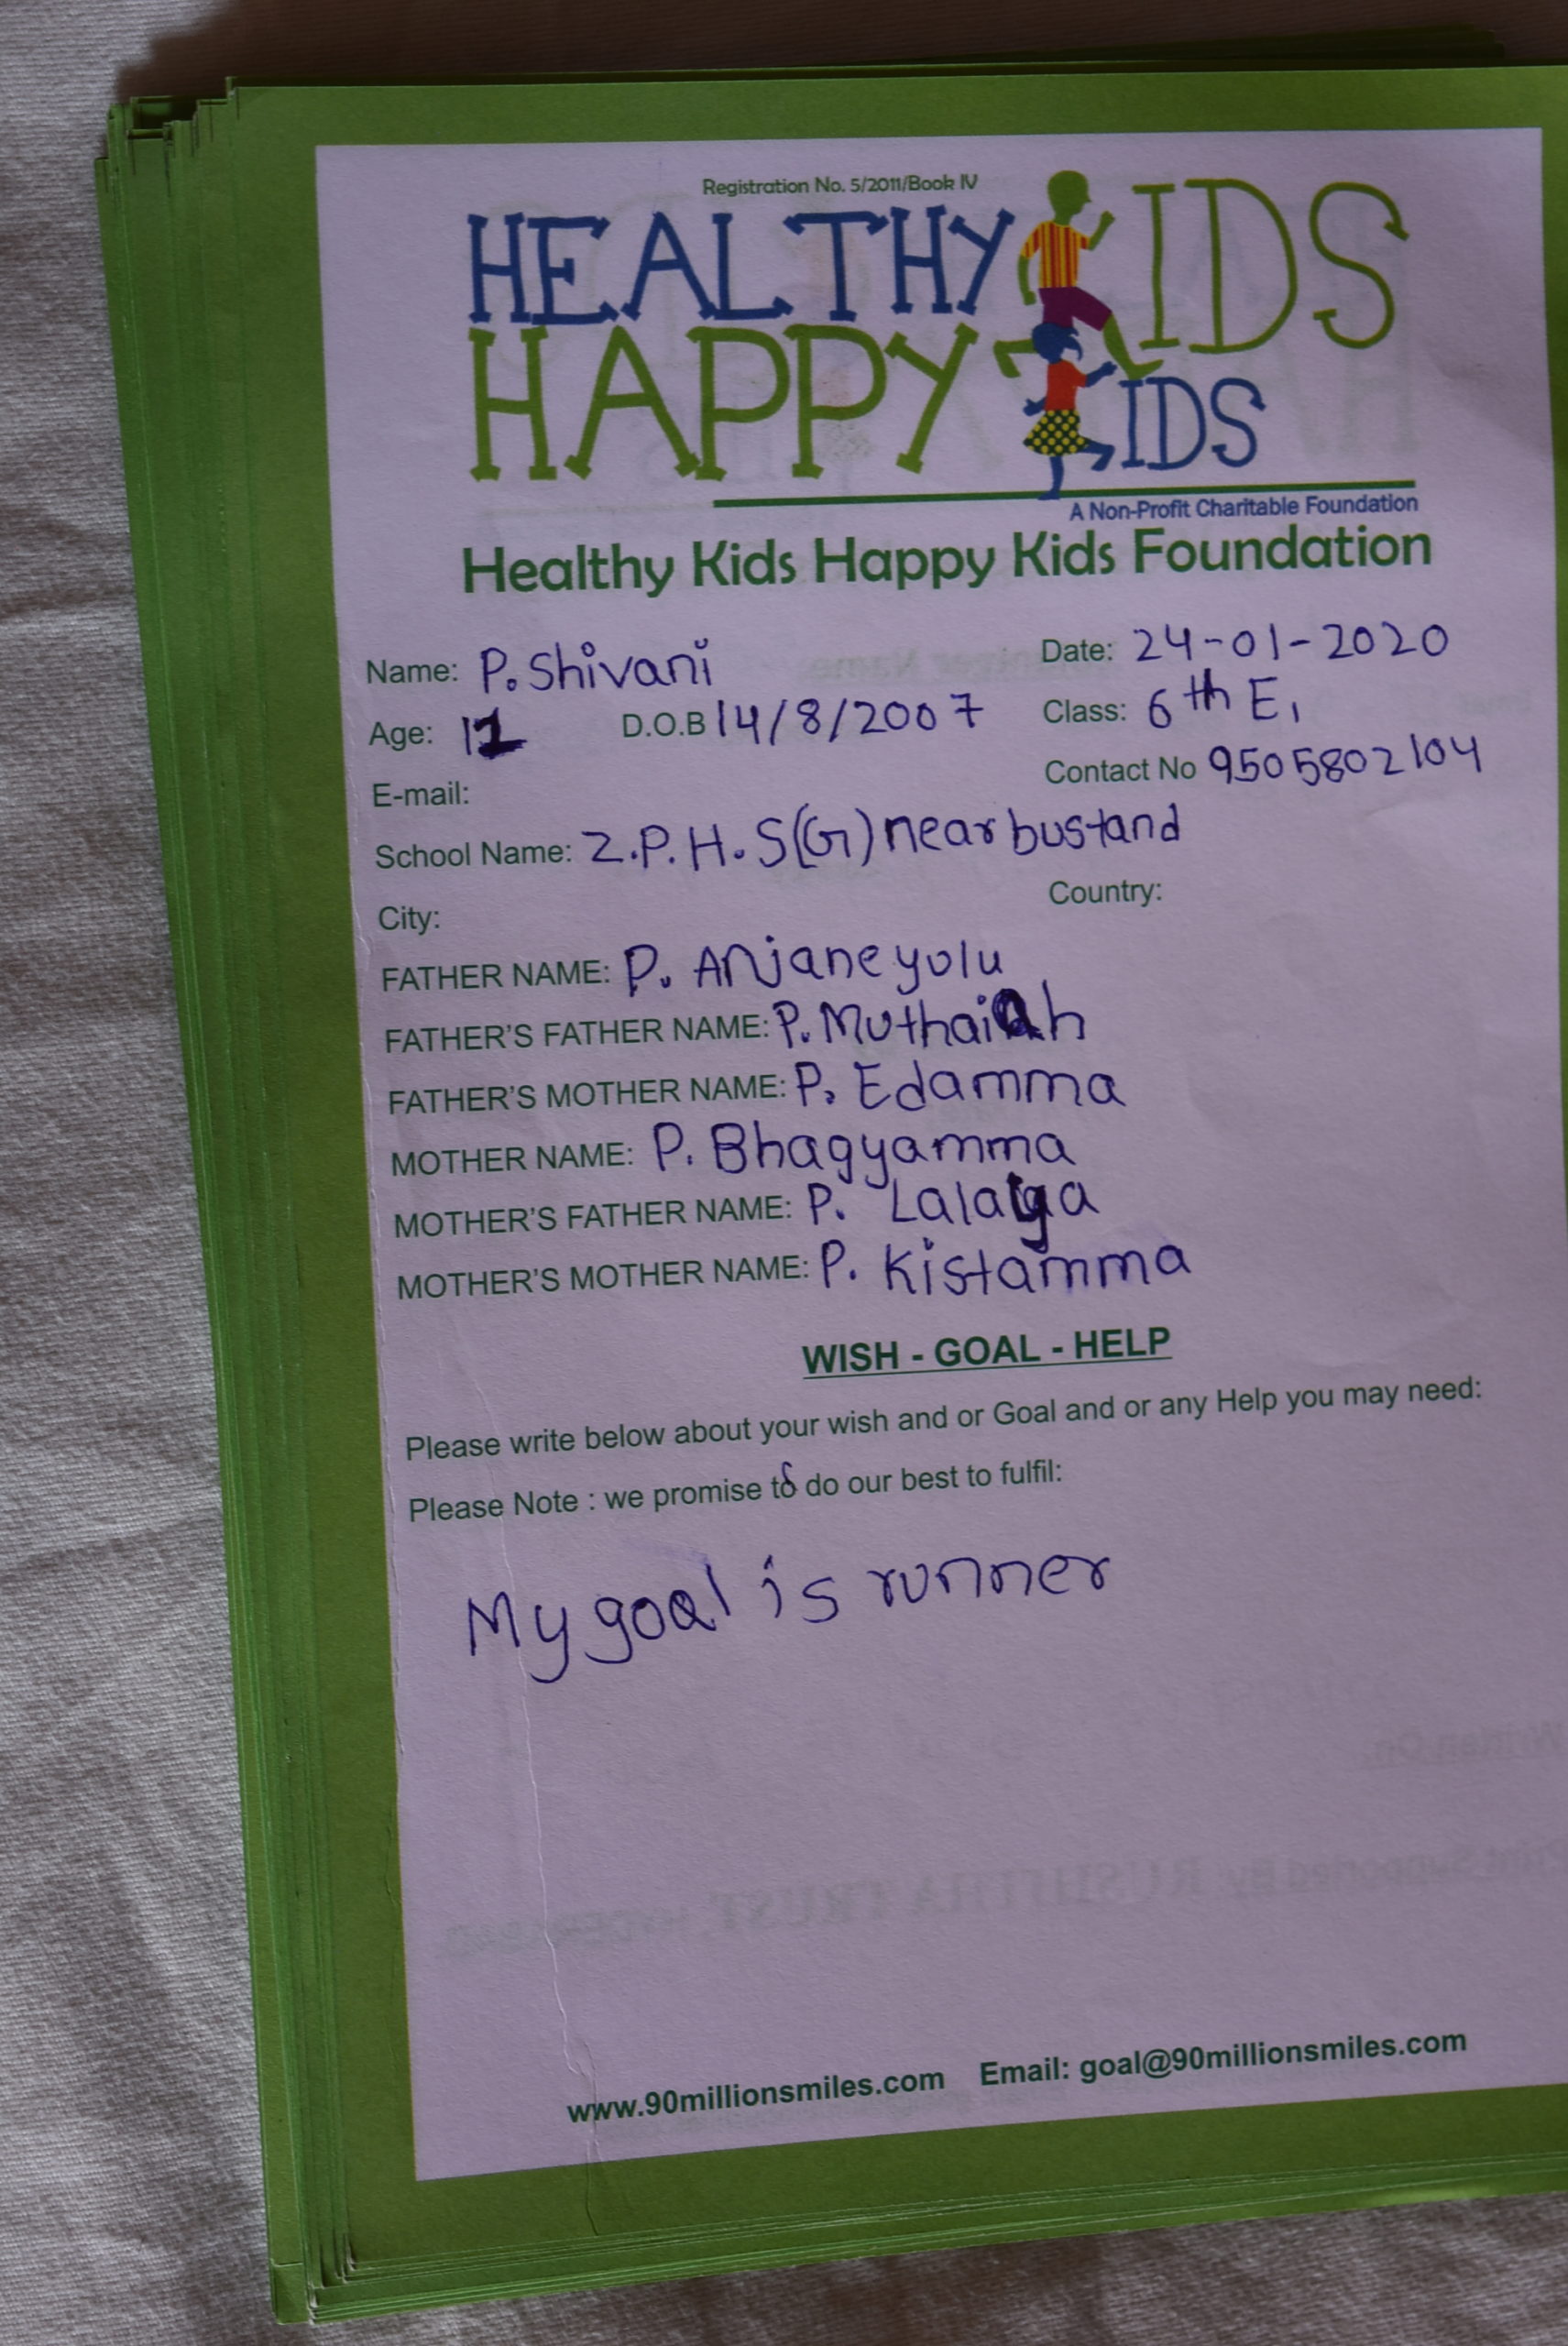 Registration No. 5/2011/Book IV
HEALTHY KIDS
HAPPY KIDS
A Non-Profit Charitable Foundation
Healthy Kids Happy Kids Foundation
Name: P. Shivani Date: 24-01-2020
Age: 12 D.O.B 14/8/2007 Class: 6th E1
E-mail: Contact No 9505802104
School Name: Z.P.H.S(G) near bustand
City: Country:
FATHER NAME: P. Anjaneyulu
FATHER'S FATHER NAME: P. Muthaiah
FATHER'S MOTHER NAME: P. Edamma
MOTHER NAME: P. Bhagyamma
MOTHER'S FATHER NAME: P. Lalaya
MOTHER'S MOTHER NAME: P. Kistamma
WISH - GOAL - HELP
Please write below about your wish and or Goal and or any Help you may need:
Please Note : we promise to do our best to fulfil:
My goal is runner
www.90millionsmiles.com Email: goal@90millionsmiles.com